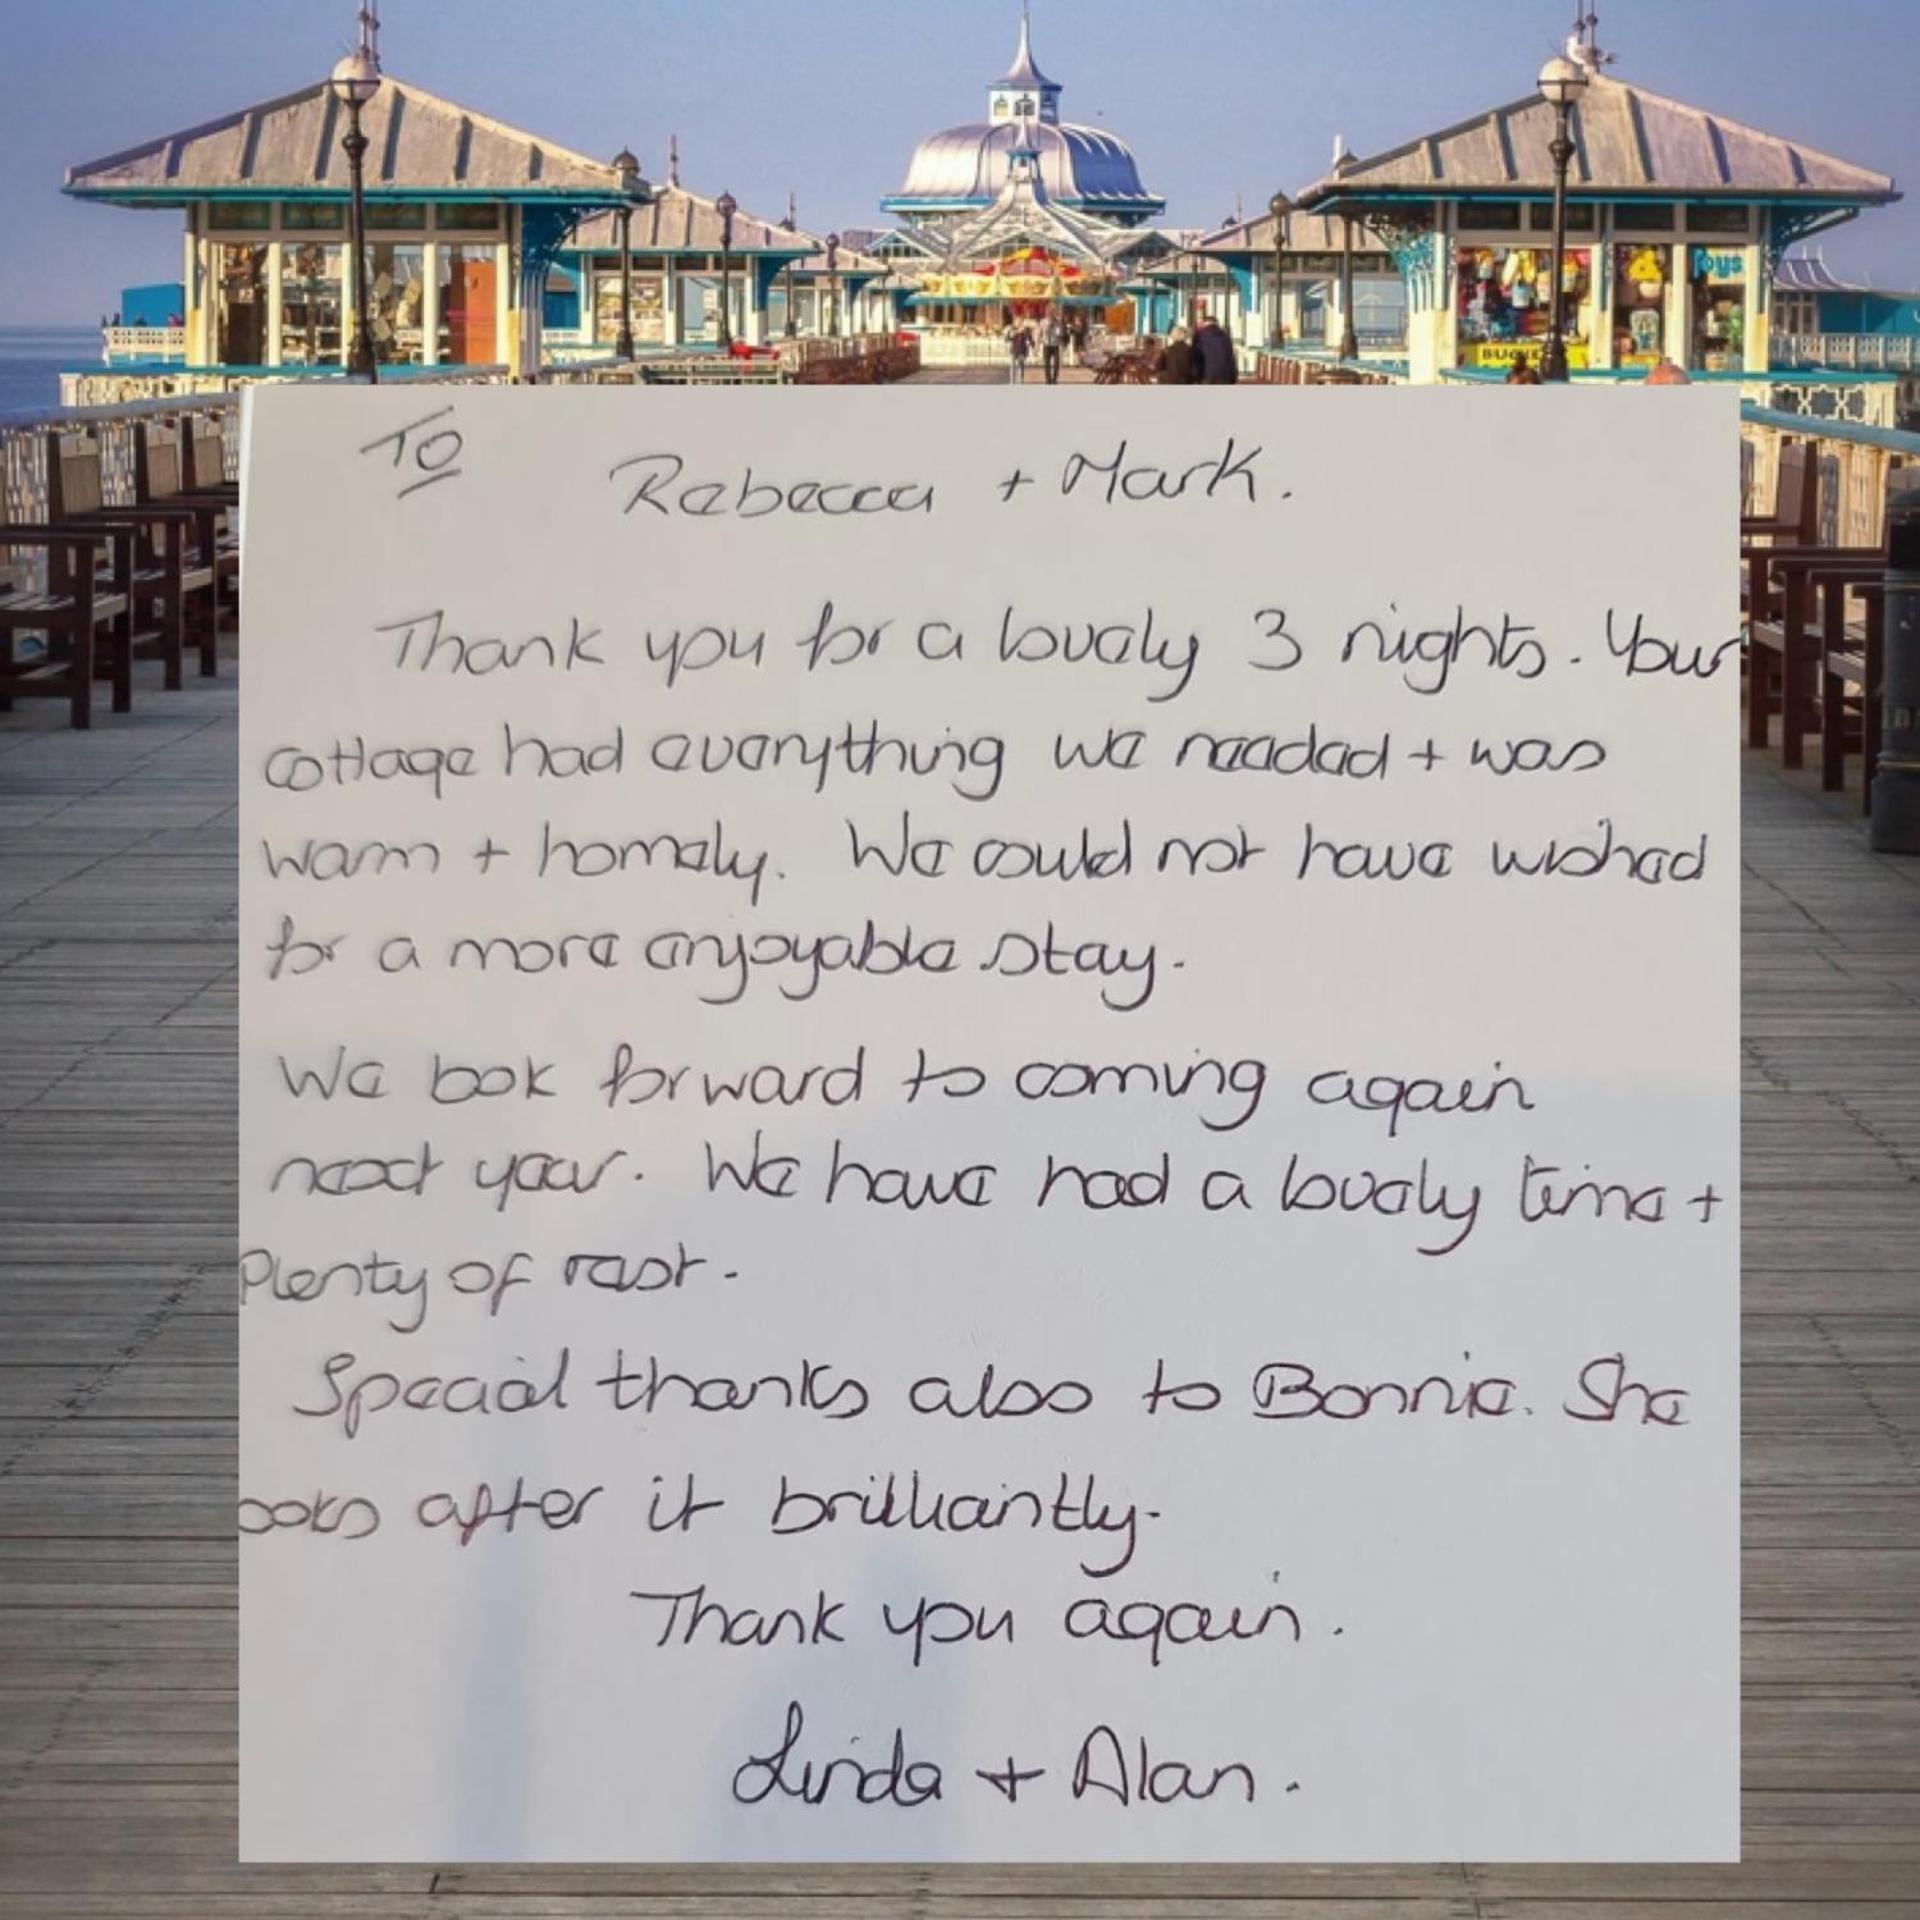 Toys
BUCKE
To
Rebecca + Mark.
Thank you for a lovely 3 nights. Your
cottage had everything we needed + was
warm + homely. We could not have wished
for a more enjoyable stay.
We look forward to coming again
next year. We have had a lovely time +
Plenty of rest.
Special thanks also to Bonnie. She
ooks after it brilliantly.
Thank you again.
Linda + Alan.